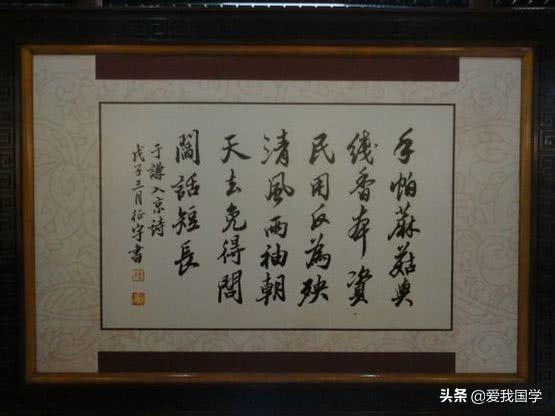 手帕蔴菇與
线香本資
民用反為殃
清風兩袖朝
天去免得閭
閻話短長
于謙入京詩
戊子三月征宇書
头条 @爱我国学